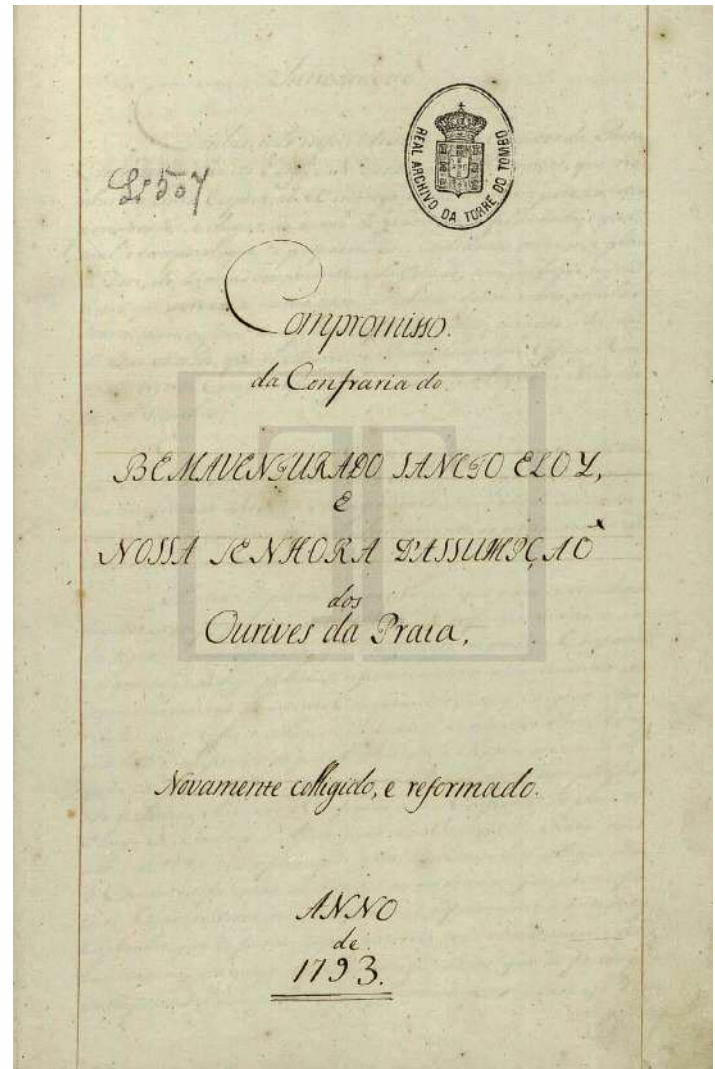 REAL ARCHIVO DA TORRE DO TOMBO
Compromisso.
da Confraria do
BEMAVENTURADO SANCTO ELOY,
E
NOSSA SENHORA D'ASSUMPÇAÕ
dos
Ourives da Prata,
Novamente colligido, e reformado.
ANNO
de
1793.